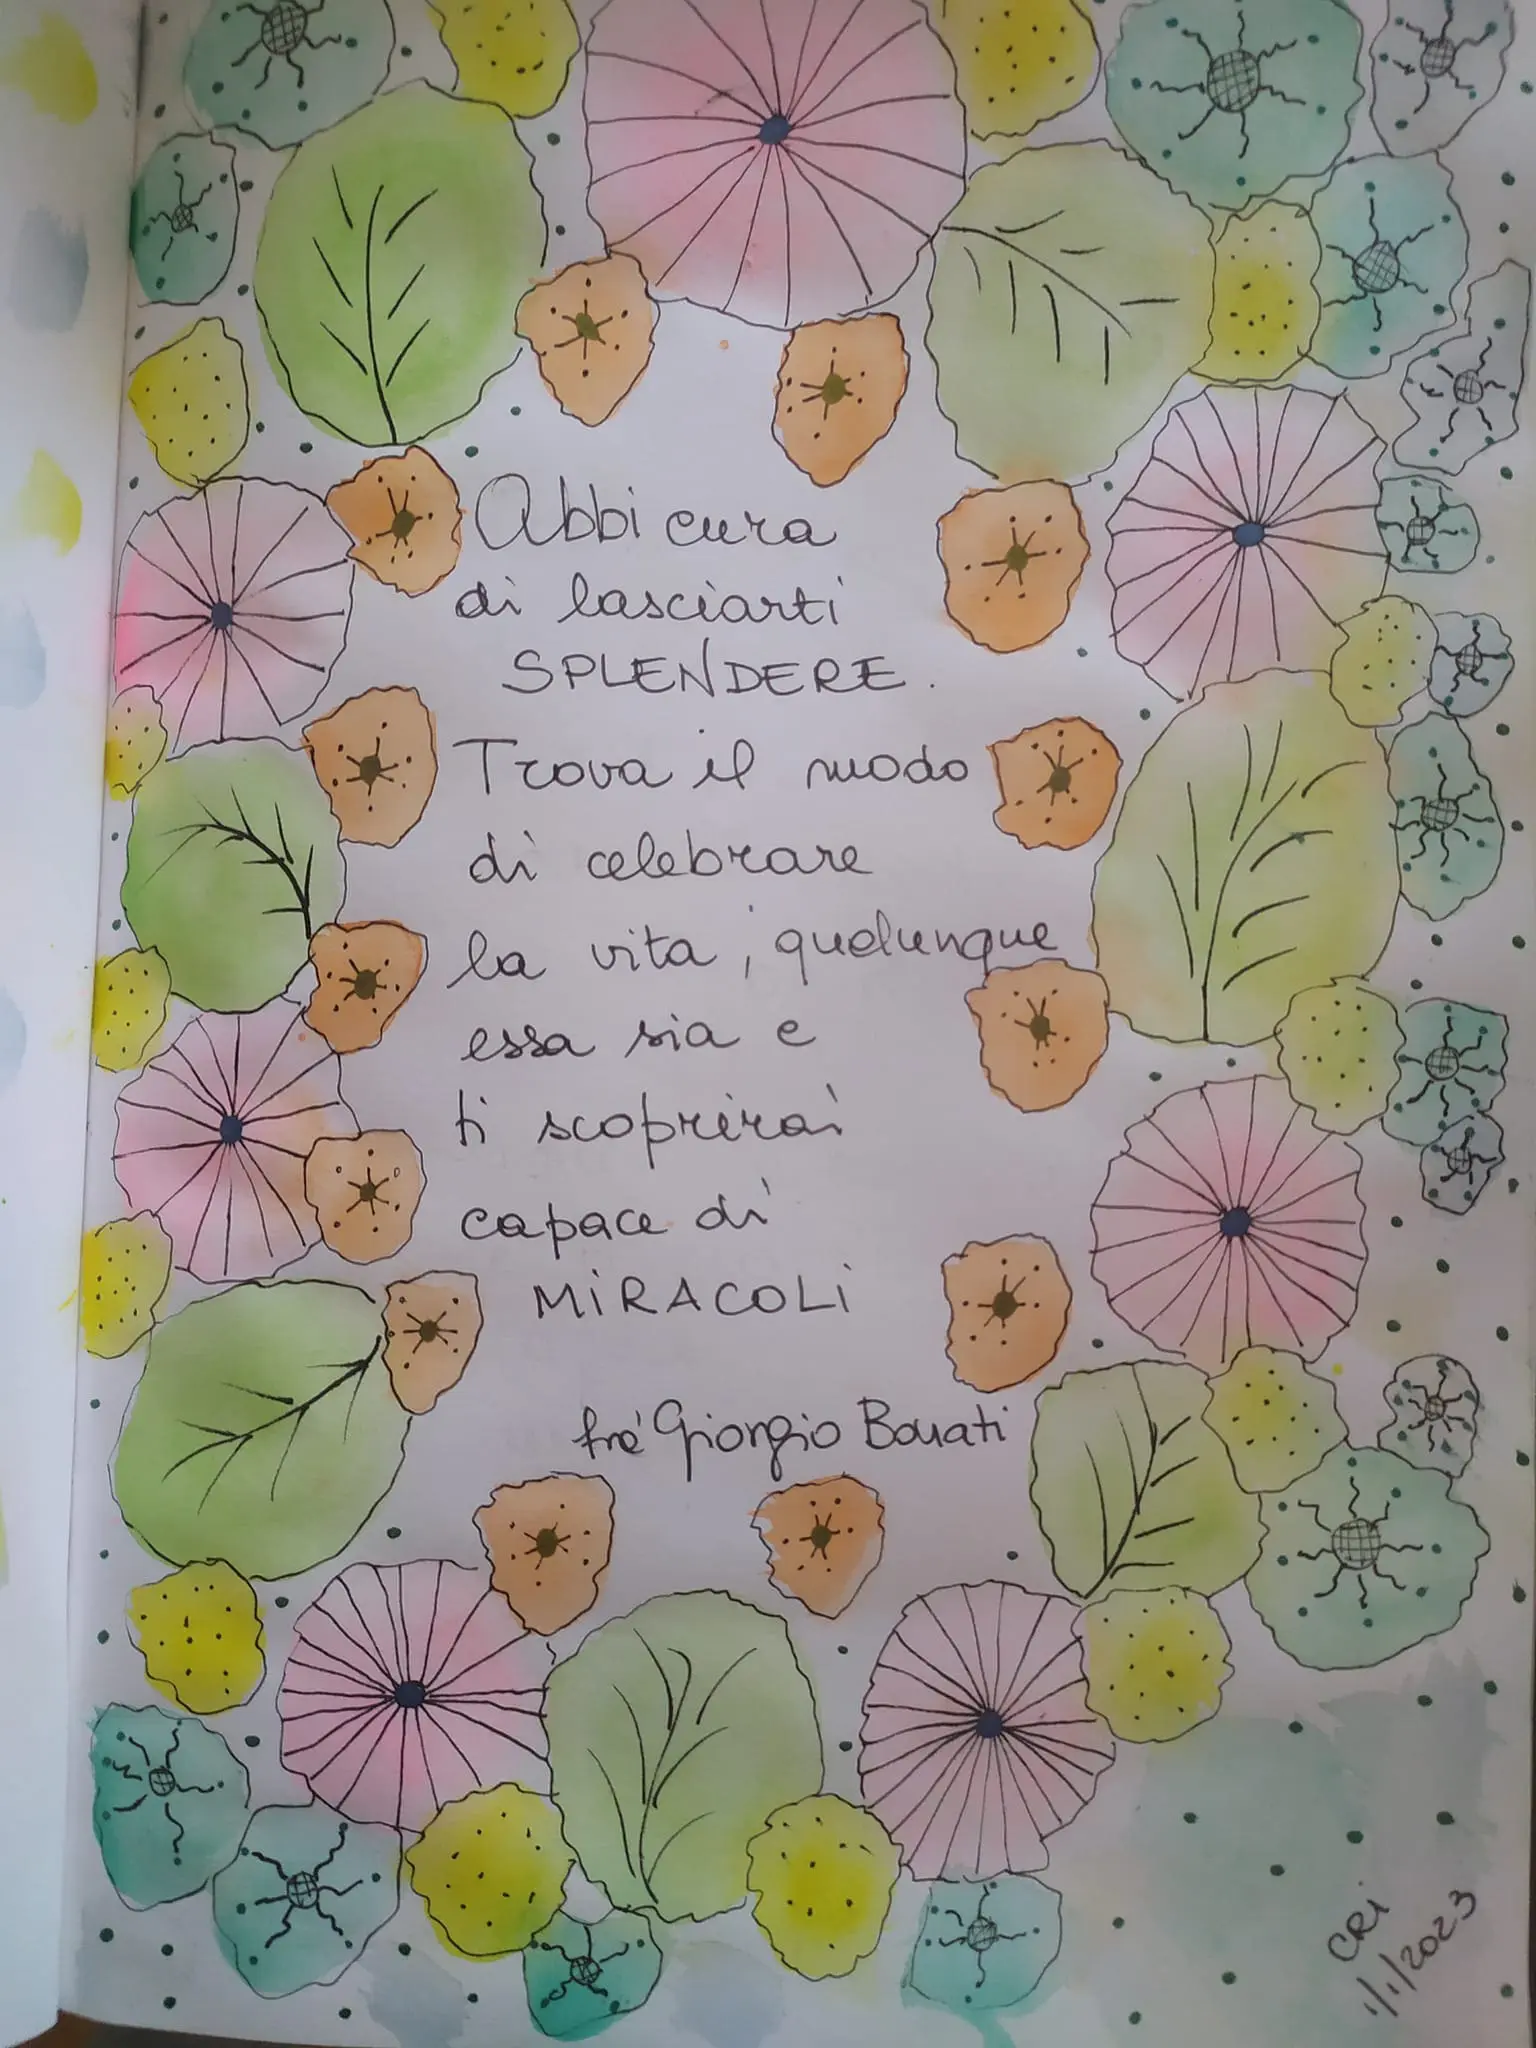 Abbi cura
di lasciarti
SPLENDERE.
Trova il modo
di celebrare
la vita, qualunque
essa sia e
ti scoprirai
capace di
MiRACOLi
fra' Giorgio Bonati
CRi
1/1/2023